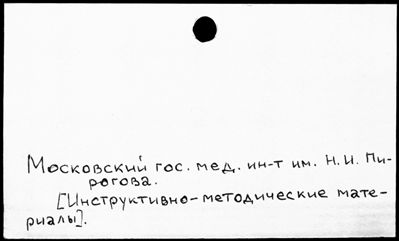 Московский гос. мед. ин-т им. Н.И. Пи-
рогова.
[Инструктивно-методические мате-
риалы].